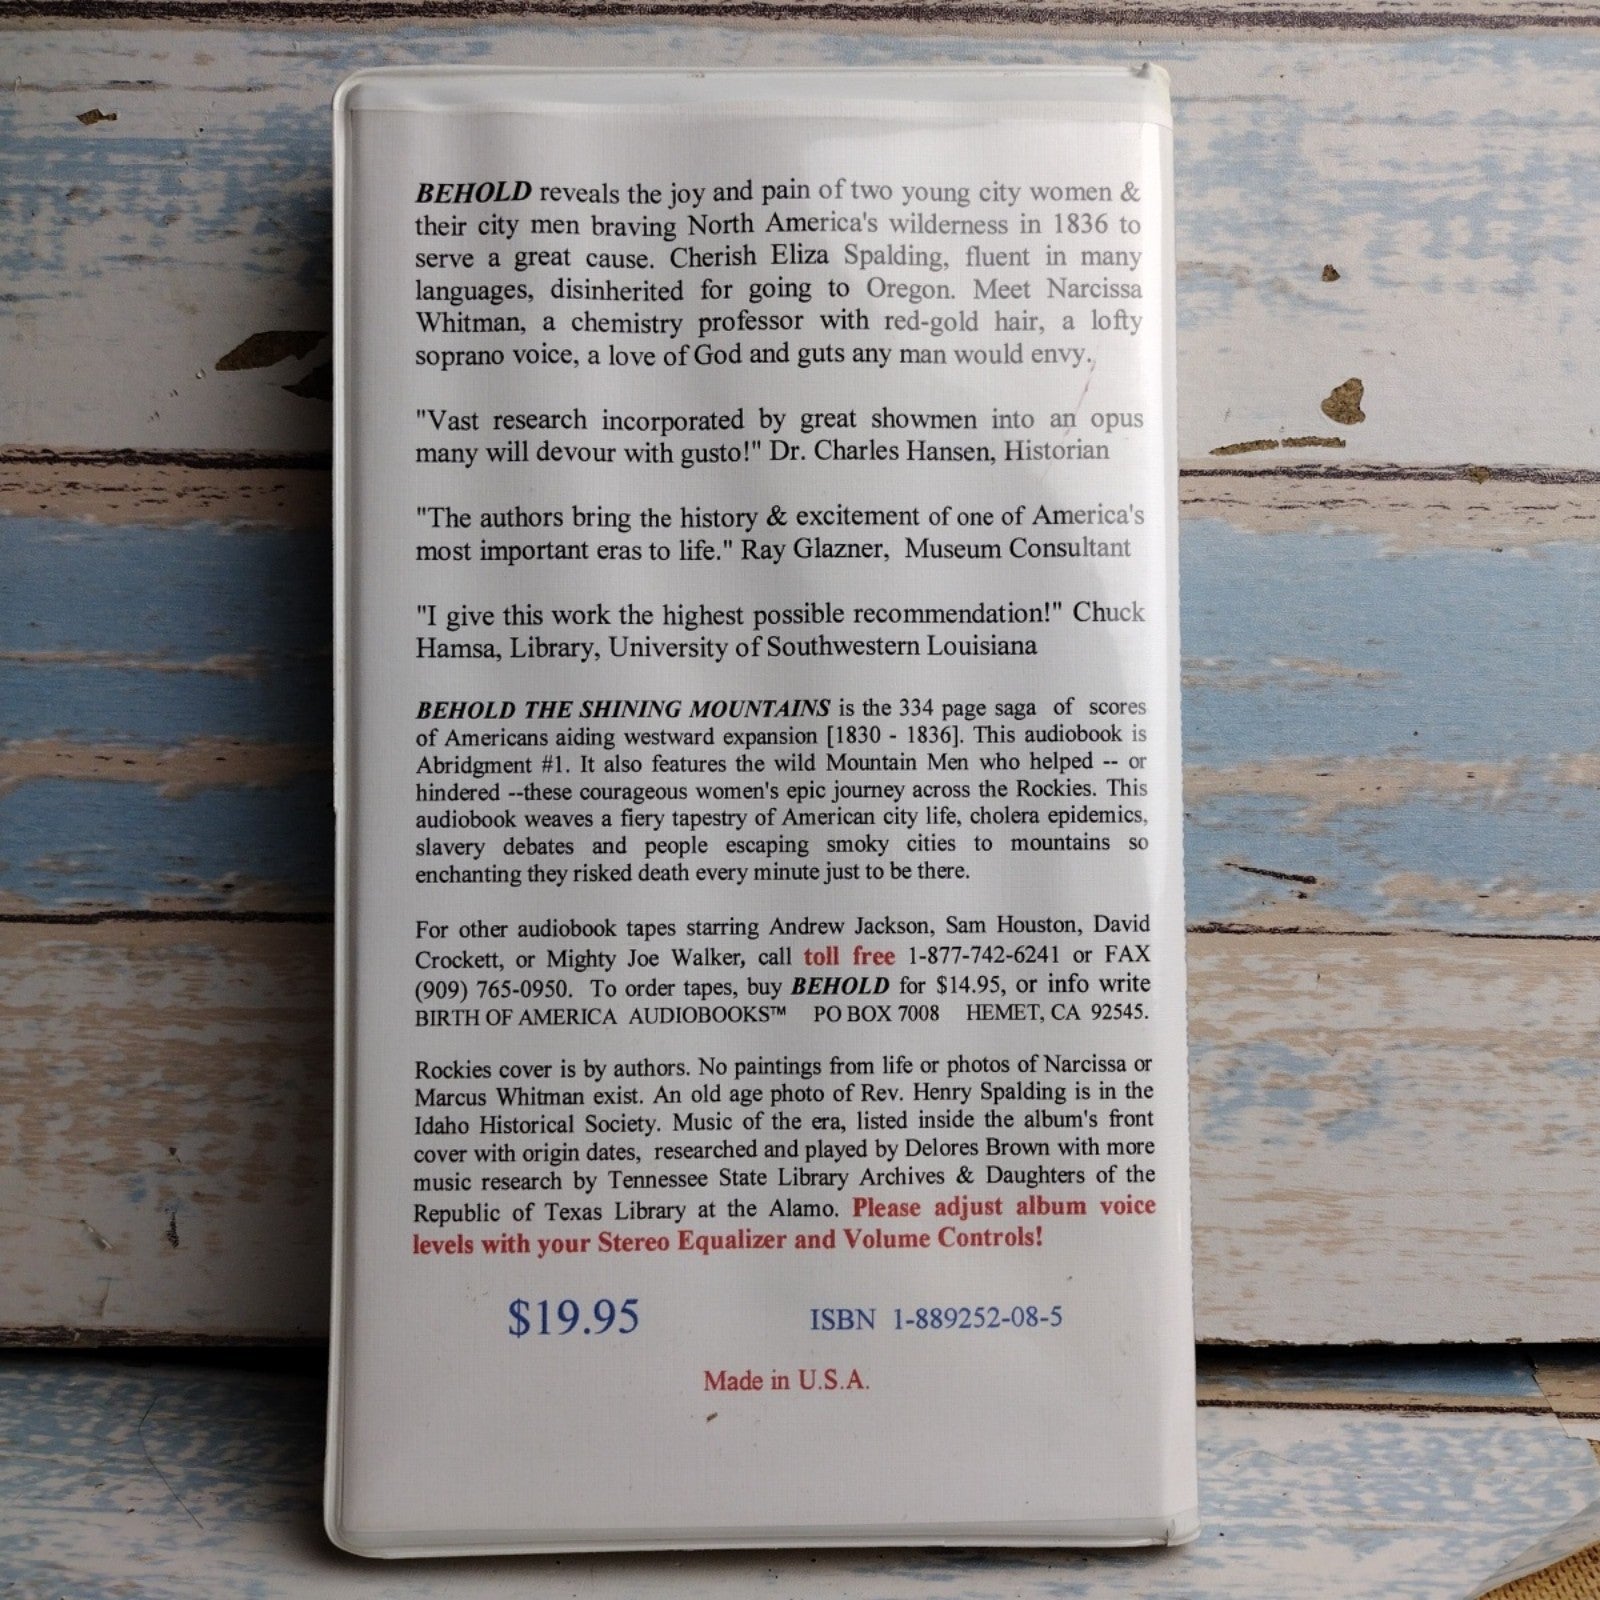 BEHOLD reveals the joy and pain of two young city women &
their city men braving North America's wilderness in 1836 to
serve a great cause. Cherish Eliza Spalding, fluent in many
languages, disinherited for going to Oregon. Meet Narcissa
Whitman, a chemistry professor with red-gold hair, a lofty
soprano voice, a love of God and guts any man would envy.
"Vast research incorporated by great showmen into an opus
many will devour with gusto!" Dr. Charles Hansen, Historian
"The authors bring the history & excitement of one of America's
most important eras to life." Ray Glazner, Museum Consultant
"I give this work the highest possible recommendation!" Chuck
Hamsa, Library, University of Southwestern Louisiana
BEHOLD THE SHINING MOUNTAINS is the 334 page saga of scores
of Americans aiding westward expansion [1830 - 1836]. This audiobook is
Abridgment #1. It also features the wild Mountain Men who helped -- or
hindered --these courageous women's epic journey across the Rockies. This
audiobook weaves a fiery tapestry of American city life, cholera epidemics,
slavery debates and people escaping smoky cities to mountains so
enchanting they risked death every minute just to be there.
For other audiobook tapes starring Andrew Jackson, Sam Houston, David
Crockett, or Mighty Joe Walker, call toll free 1-877-742-6241 or FAX
(909) 765-0950. To order tapes, buy BEHOLD for $14.95, or info write
BIRTH OF AMERICA AUDIOBOOKS™ PO BOX 7008 HEMET, CA 92545.
Rockies cover is by authors. No paintings from life or photos of Narcissa or
Marcus Whitman exist. An old age photo of Rev. Henry Spalding is in the
Idaho Historical Society. Music of the era, listed inside the album's front
cover with origin dates, researched and played by Delores Brown with more
music research by Tennessee State Library Archives & Daughters of the
Republic of Texas Library at the Alamo. Please adjust album voice
levels with your Stereo Equalizer and Volume Controls!
$19.95 ISBN 1-889252-08-5
Made in U.S.A.